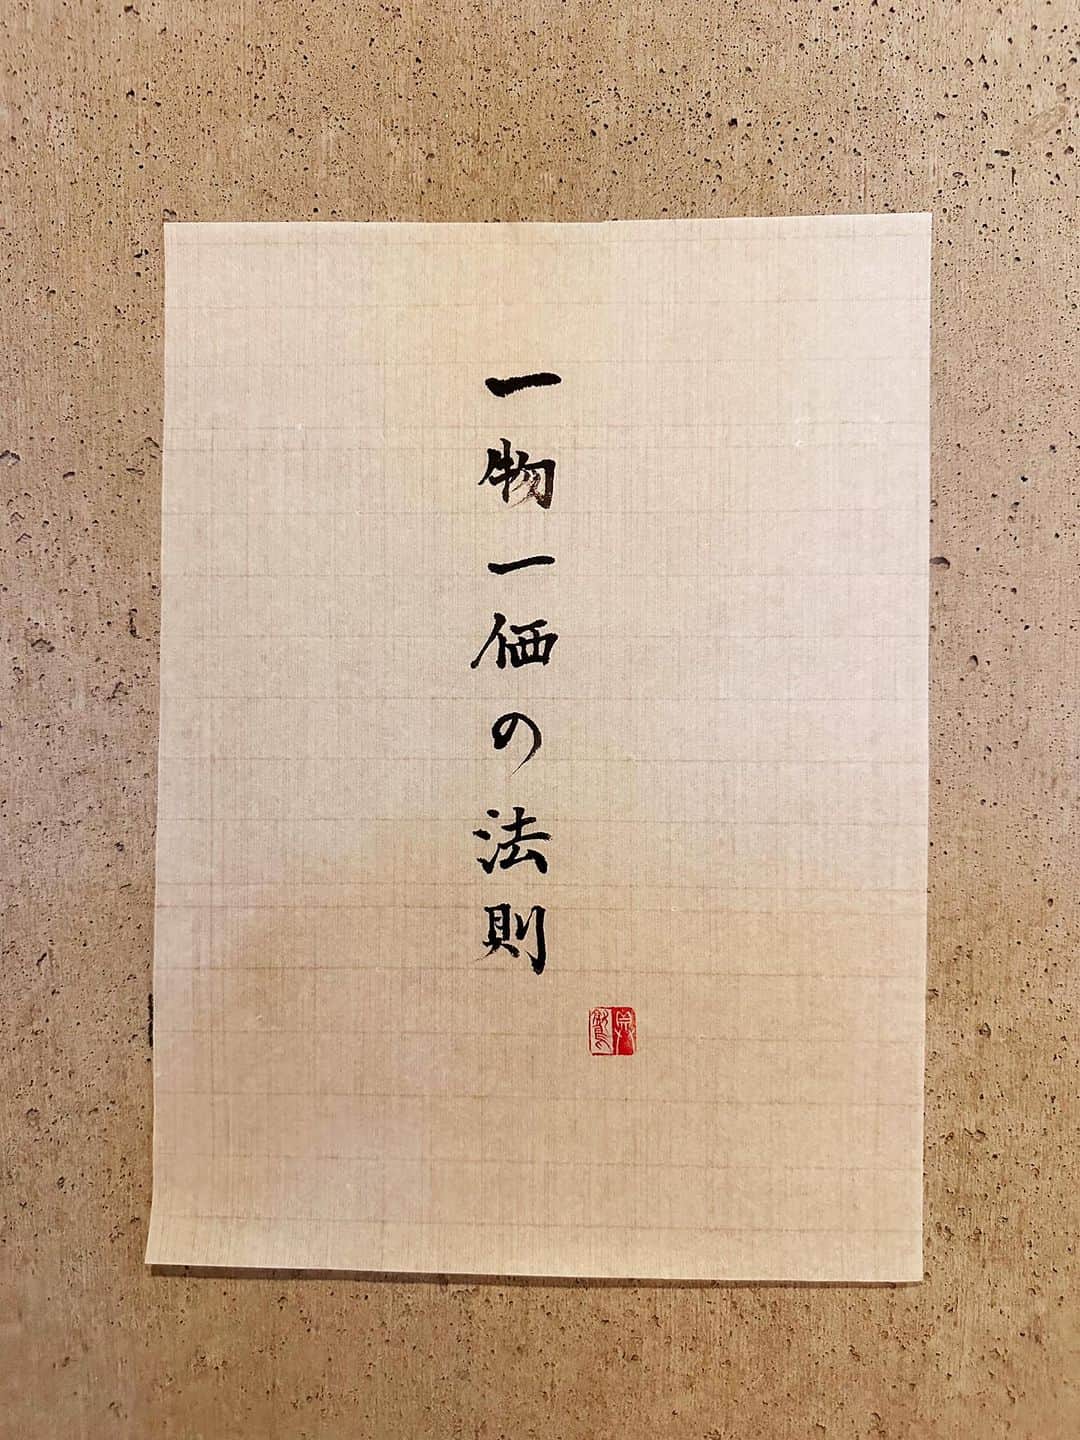 一物一価の法則